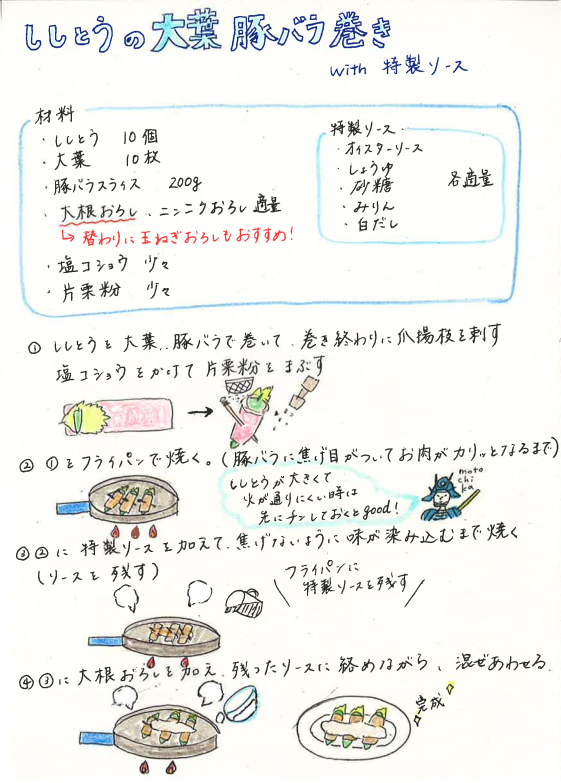 ししとうの大葉豚バラ巻き
with 特製ソース
材料
・ししとう 10個
・大葉 10枚
・豚バラスライス 200g
・大根おろし、ニンニクおろし 適量
↳替わりに玉ねぎおろしもおすすめ!
・塩コショウ 少々
・片栗粉 少々
特製ソース
・オイスターソース
・しょうゆ
・砂糖
・みりん
・白だし
各適量
①ししとうを大葉、豚バラで巻いて、巻き終わりに爪揚枝を刺す
塩コショウをかけて片栗粉をまぶす
②①をフライパンで焼く。(豚バラに焦げ目がついてお肉がカリッとなるまで)
ししとうが大きくて
火が通りにくい時は
先にチンしておくとgood!
moto
chi
ka
③②に特製ソースを加えて、焦げないように味が染み込むまで焼く
(ソースを残す)
フライパンに
特製ソースを残す
④③に大根おろしを加え、残ったソースに絡めながら、混ぜあわせる。
完成